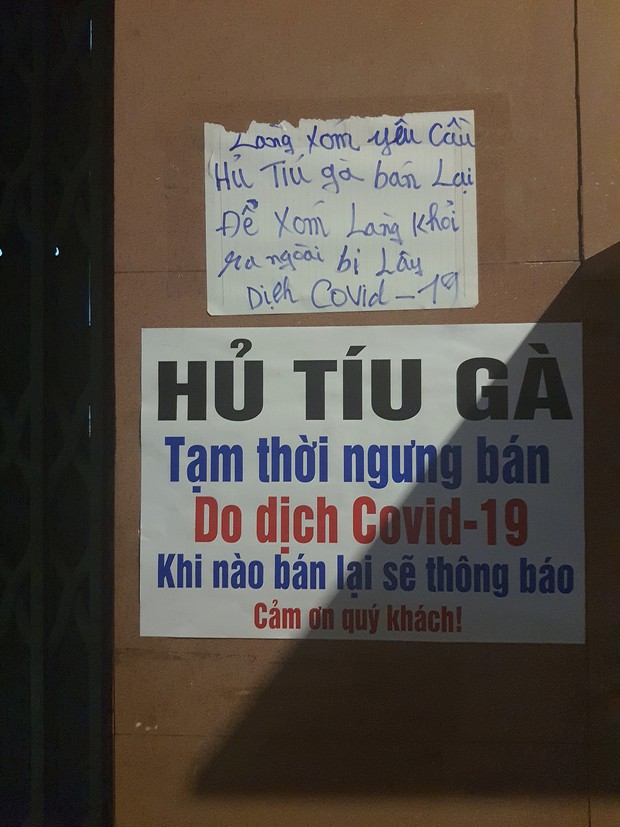 Làng xóm yêu cầu
Hủ Tiú gà bán Lại
Để xóm Làng khỏi
ra ngoài bị Lây
Dịch Covid-19
HỦ TÍU GÀ
Tạm thời ngưng bán
Do dịch Covid-19
Khi nào bán lại sẽ thông báo
Cảm ơn quý khách!